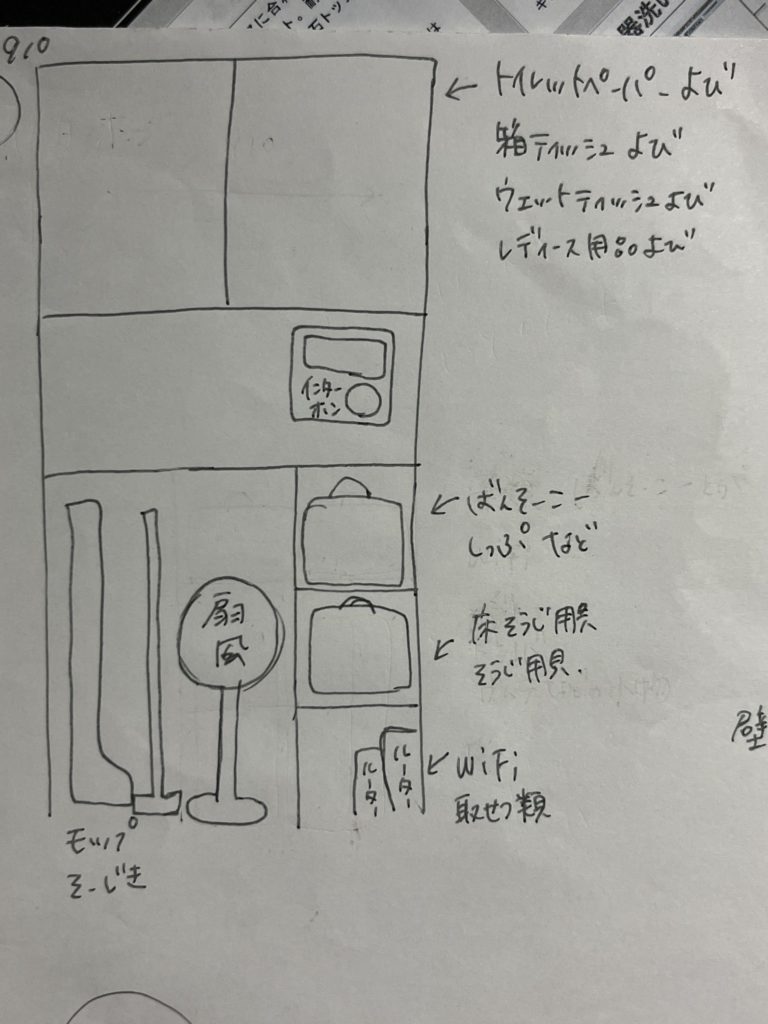 910
トイレットペーパーよび
箱ティッシュよび
ウェットティッシュよび
レディース用品よび
インター
ホン
ばんそーこー
しっぷなど
床そうじ用具
そうじ用具.
扇
風
ルーター
ルーター
WiFi
取せつ類
モップ
そーじき
壁